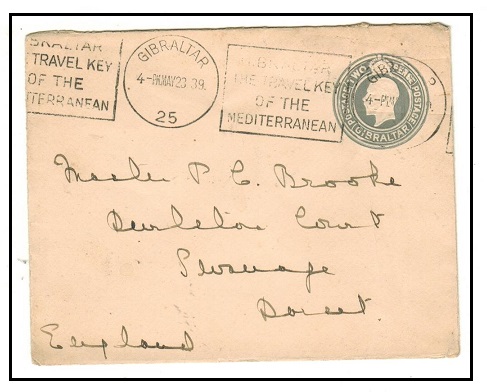 GIBRALTAR
TRAVEL KEY
OF THE
MEDITERRANEAN
GIBRALTAR
4-PM MAY 23 39
25
GIBRALTAR
THE TRAVEL KEY
OF THE
MEDITERRANEAN
POSTAGE TWO POSTAGE
GIBRALTAR
GIB
4-PM
Master P. C. Brooke
Durlston Court
Swanage
Dorset.
England